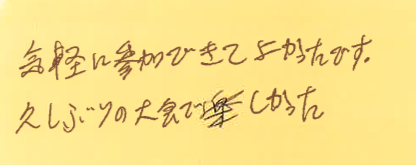 気軽に参加できてよかったです。
久しぶりの大会で楽しかった